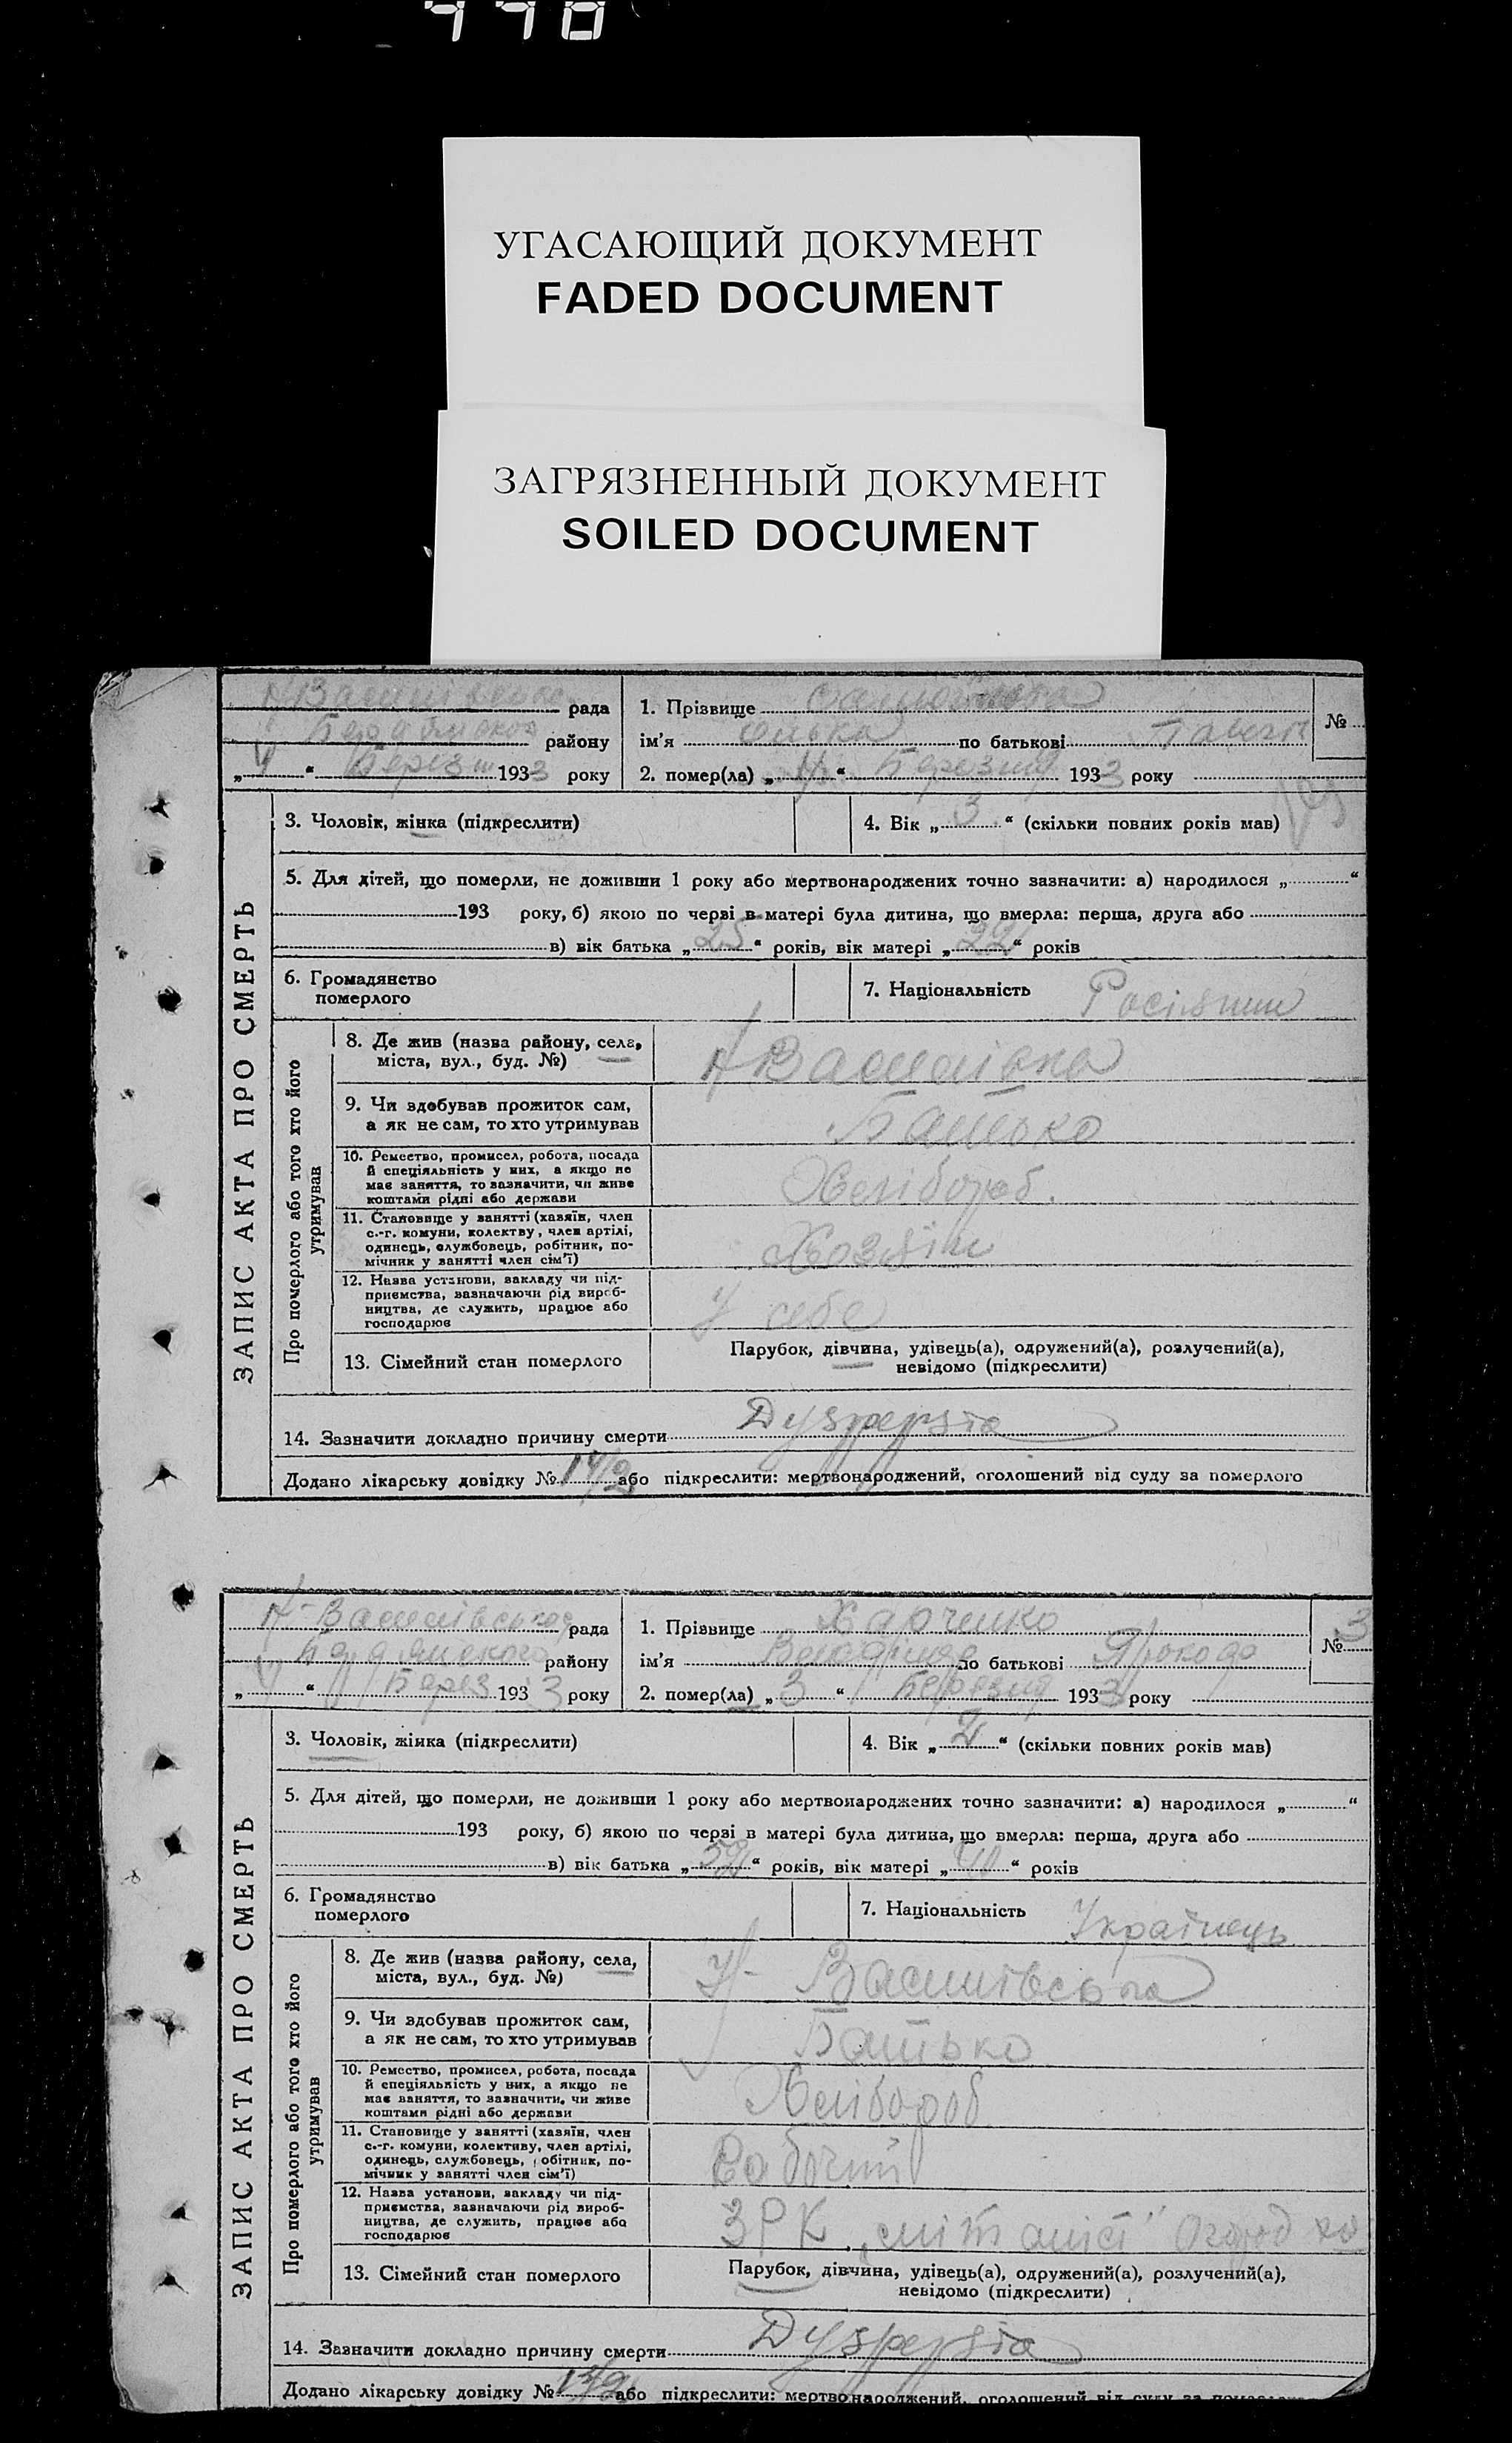 УГАСАЮЩИЙ ДОКУМЕНТ
FADED DOCUMENT
ЗАГРЯЗНЕННЫЙ ДОКУМЕНТ
SOILED DOCUMENT
рада
району
„ “ 1933 року
1. Прізвище
ім'я по батькові
2. помер(ла) „ “ Березня 1933 року
№
ЗАПИС АКТА ПРО СМЕРТЬ
3. Чоловік, жінка (підкреслити)
4. Вік „ 3 “ (скільки повних років мав)
5. Для дітей, що померли, не доживши 1 року або мертвонароджених точно зазначити: а) народилося „ “
193 року, б) якою по черзі в матері була дитина, що вмерла: перша, друга або
в) вік батька „ 25 “ років, вік матері „ 22 “ років
6. Громадянство
померлого
7. Національність Росіянин
Про померлого або того хто його
утримував
8. Де жив (назва району, села,
міста, вул., буд. №)
Василівка
9. Чи здобував прожиток сам,
а як не сам, то хто утримував
Батько
10. Ремество, промисел, робота, посада
й спеціяльність у них, а якщо не
має заняття, то зазначити, чи живе
коштами рідні або держави
Хлібороб.
11. Становище у занятті (хазяїн, член
с.-г. комуни, колектву, член артілі,
одинець, службовець, робітник, по-
мічник у занятті член сім'ї)
Хозяїн
12. Назва установи, закладу чи під-
приємства, зазначаючи рід вироб-
ництва, де служить, працює або
господарює
У себе
13. Сімейний стан померлого
Парубок, дівчина, удівець(а), одружений(а), розлучений(а),
невідомо (підкреслити)
14. Зазначити докладно причину смерти Dyspepsia
Додано лікарську довідку № або підкреслити: мертвонароджений, оголошений від суду за померлого
Василівськая рада
району
„ “ Берез 1933 року
1. Прізвище Харченко
ім'я по батькові
2. помер(ла) „ 3 “ Березня 1933 року
№ 3
ЗАПИС АКТА ПРО СМЕРТЬ
3. Чоловік, жінка (підкреслити)
4. Вік „ 2 “ (скільки повних років мав)
5. Для дітей, що померли, не доживши 1 року або мертвонароджених точно зазначити: а) народилося „ “
193 року, б) якою по черзі в матері була дитина, що вмерла: перша, друга або
в) вік батька „ “ років, вік матері „ 40 “ років
6. Громадянство
померлого
7. Національність Українець
Про померлого або того хто його
утримував
8. Де жив (назва району, села,
міста, вул., буд. №)
Василівська
9. Чи здобував прожиток сам,
а як не сам, то хто утримував
Батько
10. Ремество, промисел, робота, посада
й спеціяльність у них, а якщо не
має заняття, то зазначити, чи живе
коштами рідні або держави
Хлібороб
11. Становище у занятті (хазяїн, член
с.-г. комуни, колективу, член артілі,
одинець, службовець, обітник, по-
мічник у занятті член сім'ї)
Рабочий
12. Назва установи, закладу чи під-
приємства, зазначаючи рід вироб-
ництва, де служить, працює або
господарює
ЗРК Огород
13. Сімейний стан померлого
Парубок, дівчина, удівець(а), одружений(а), розлучений(а),
невідомо (підкреслити)
14. Зазначити докладно причину смерти Dyspepsia
Додано лікарську довідку № або підкреслити: мертвонароджений, оголошений від суду за